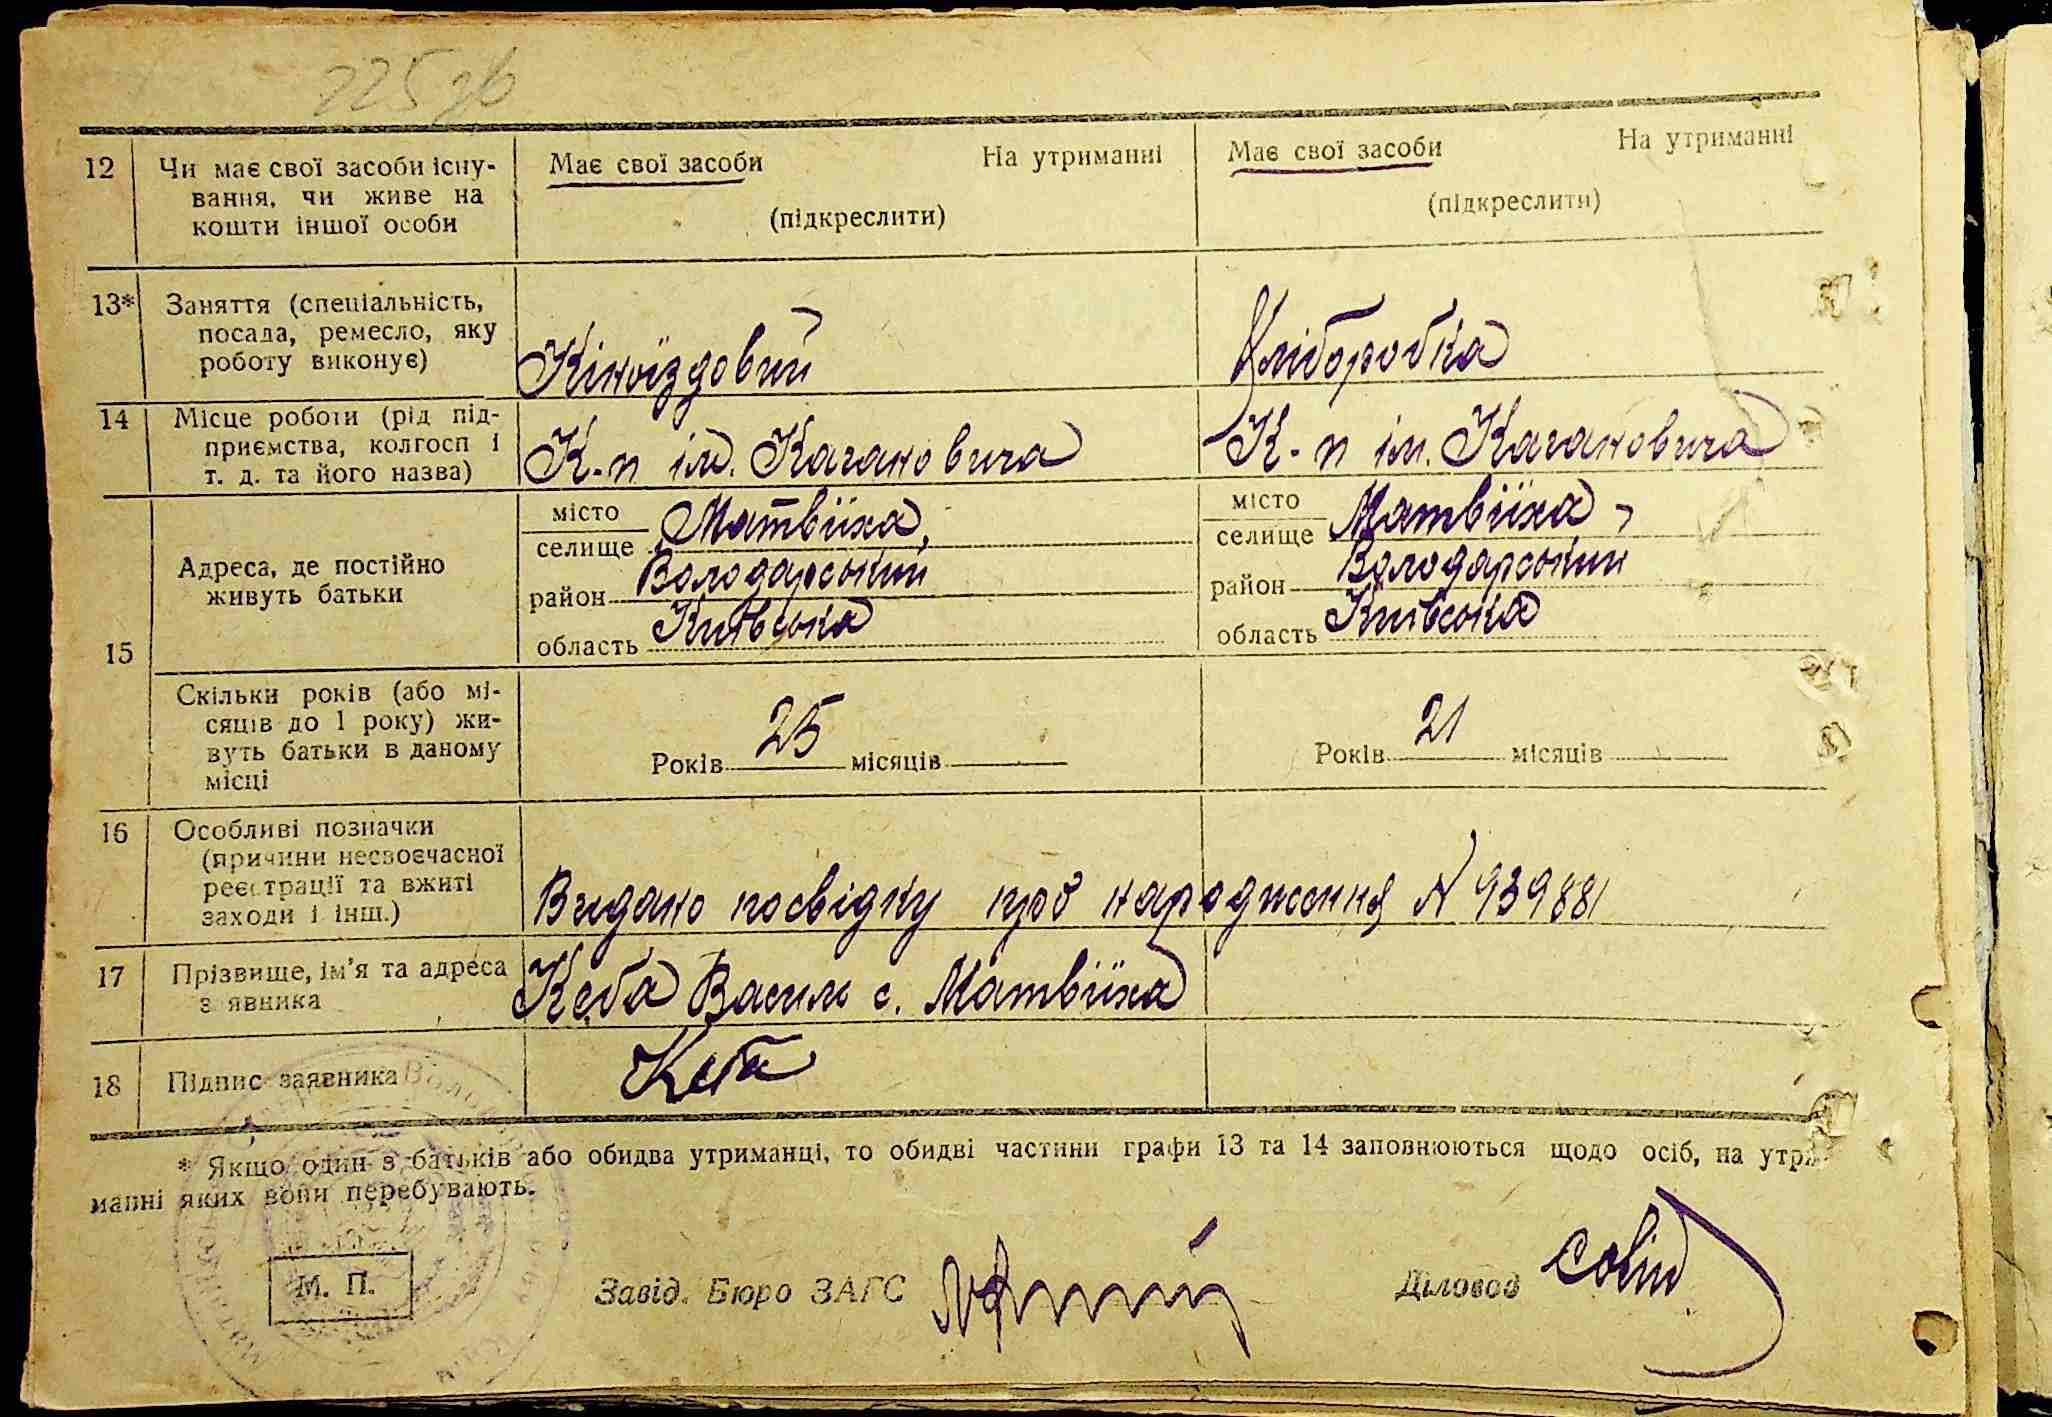 225 зв
12 Чи має свої засоби існу- Має свої засоби На утриманні Має свої засоби На утриманні
вання, чи живе на
кошти іншої особи (підкреслити) (підкреслити)
13* Заняття (спеціальність,
посада, ремесло, яку
роботу виконує) Кіноїздовий Хліборобка
14 Місце роботи (рід під-
приємства, колгосп і
т. д. та його назва) К-п ім. Кагановича К-п ім. Кагановича
15 Адреса, де постійно
живуть батьки
місто
селище Матвіїха, район Володарський область Київська
місто
селище Матвіїха, район Володарський область Київська
Скільки років (або мі-
сяців до 1 року) жи-
вуть батьки в даному
місці
Років 25 місяців Років 21 місяців
16 Особливі позначки
(причини несвоєчасної
реєстрації та вжиті
заходи і інш.) Видано посвідку про народження N 939881
17 Прізвище, ім'я та адреса
заявника Кеба Василь с. Матвіїха
18 Підпис заявника Кеба
* Якщо один з батьків або обидва утриманці, то обидві частини графи 13 та 14 заповнюються щодо осіб, на утри-
манні яких вони перебувають.
М. П. Завід. Бюро ЗАГС Діловод